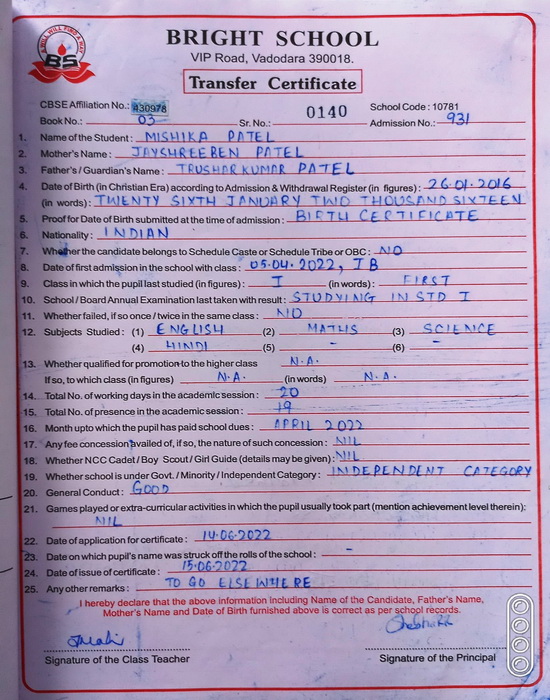 A WILL WILL FIND A WAY
BS
BRIGHT SCHOOL
VIP Road, Vadodara 390018.
Transfer Certificate
CBSE Affiliation No.: 430978 0140 School Code : 10781
Book No.: 03 Sr. No.: Admission No.: 931
1. Name of the Student : MISHIKA PATEL
2. Mother's Name : JAYSHREEBEN PATEL
3. Father's / Guardian's Name : TRUSHARKUMAR PATEL
4. Date of Birth (in Christian Era) according to Admission & Withdrawal Register (in figures) : 26.01.2016
(in words) : TWENTY SIXTH JANUARY TWO THOUSAND SIXTEEN
5. Proof for Date of Birth submitted at the time of admission : BIRTH CERTIFICATE
6. Nationality : INDIAN
7. Whether the candidate belongs to Schedule Caste or Schedule Tribe or OBC : NO
8. Date of first admission in the school with class : 05.04.2022, I B
9. Class in which the pupil last studied (in figures) : I (in words) : FIRST
10. School / Board Annual Examination last taken with result : STUDYING IN STD I
11. Whether failed, if so once / twice in the same class : NO
12. Subjects Studied : (1) ENGLISH (2) MATHS (3) SCIENCE
(4) HINDI (5) - (6) -
13. Whether qualified for promotion to the higher class N.A.
If so, to which class (in figures) N.A. (in words) N.A.
14. Total No. of working days in the academic session : 20
15. Total No. of presence in the academic session : 19
16. Month upto which the pupil has paid school dues : APRIL 2022
17. Any fee concession availed of, if so, the nature of such concession : NIL
18. Whether NCC Cadet / Boy Scout / Girl Guide (details may be given) : NIL
19. Whether school is under Govt. / Minority / Independent Category : INDEPENDENT CATEGORY
20. General Conduct : GOOD
21. Games played or extra-curricular activities in which the pupil usually took part (mention achievement level therein) :
NIL
22. Date of application for certificate : 14.06.2022
23. Date on which pupil's name was struck off the rolls of the school : -
24. Date of issue of certificate : 15.06.2022
25. Any other remarks : TO GO ELSEWHERE
I hereby declare that the above information including Name of the Candidate, Father's Name,
Mother's Name and Date of Birth furnished above is correct as per school records.
Signature of the Class Teacher Signature of the Principal